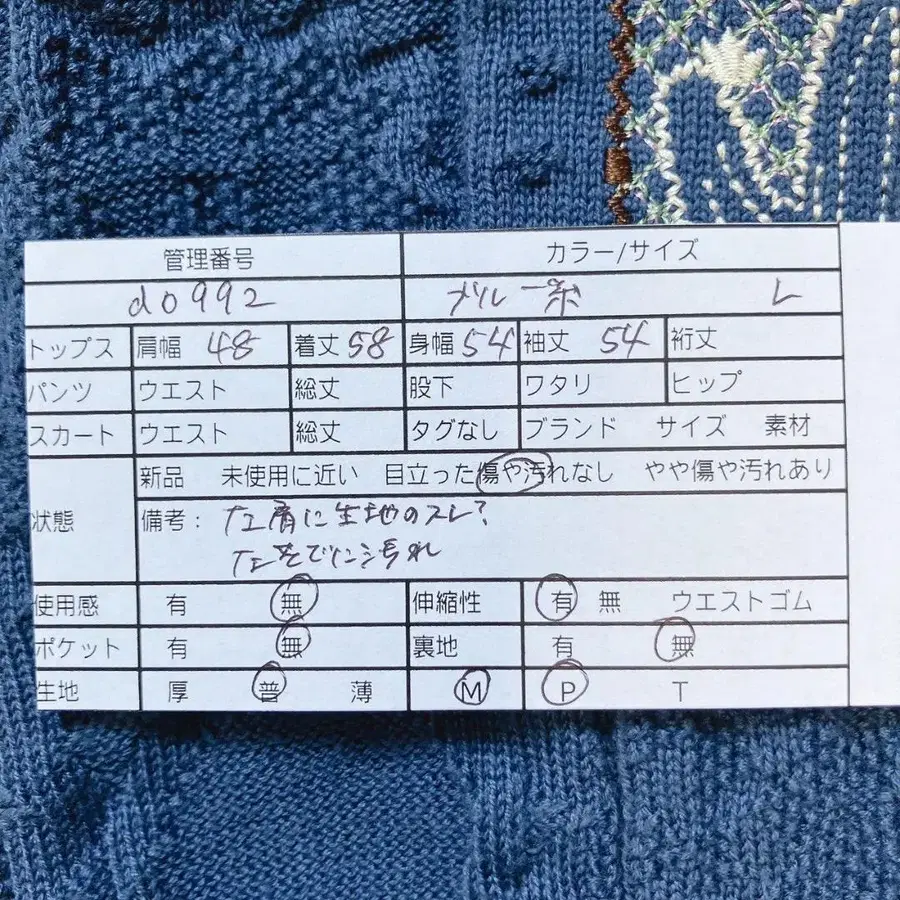 管理番号 カラー/サイズ
d0992 ブルー系 L
トップス 肩幅 48 着丈 58 身幅 54 袖丈 54 裄丈
パンツ ウエスト 総丈 股下 ワタリ ヒップ
スカート ウエスト 総丈 タグなし ブランド サイズ 素材
状態 新品 未使用に近い 目立った傷や汚れなし やや傷や汚れあり
備考: 左肩に生地のスレ?
左そでに汚れ
使用感 有 無 伸縮性 有 無 ウエストゴム
ポケット 有 無 裏地 有 無
生地 厚 普 薄 M P T